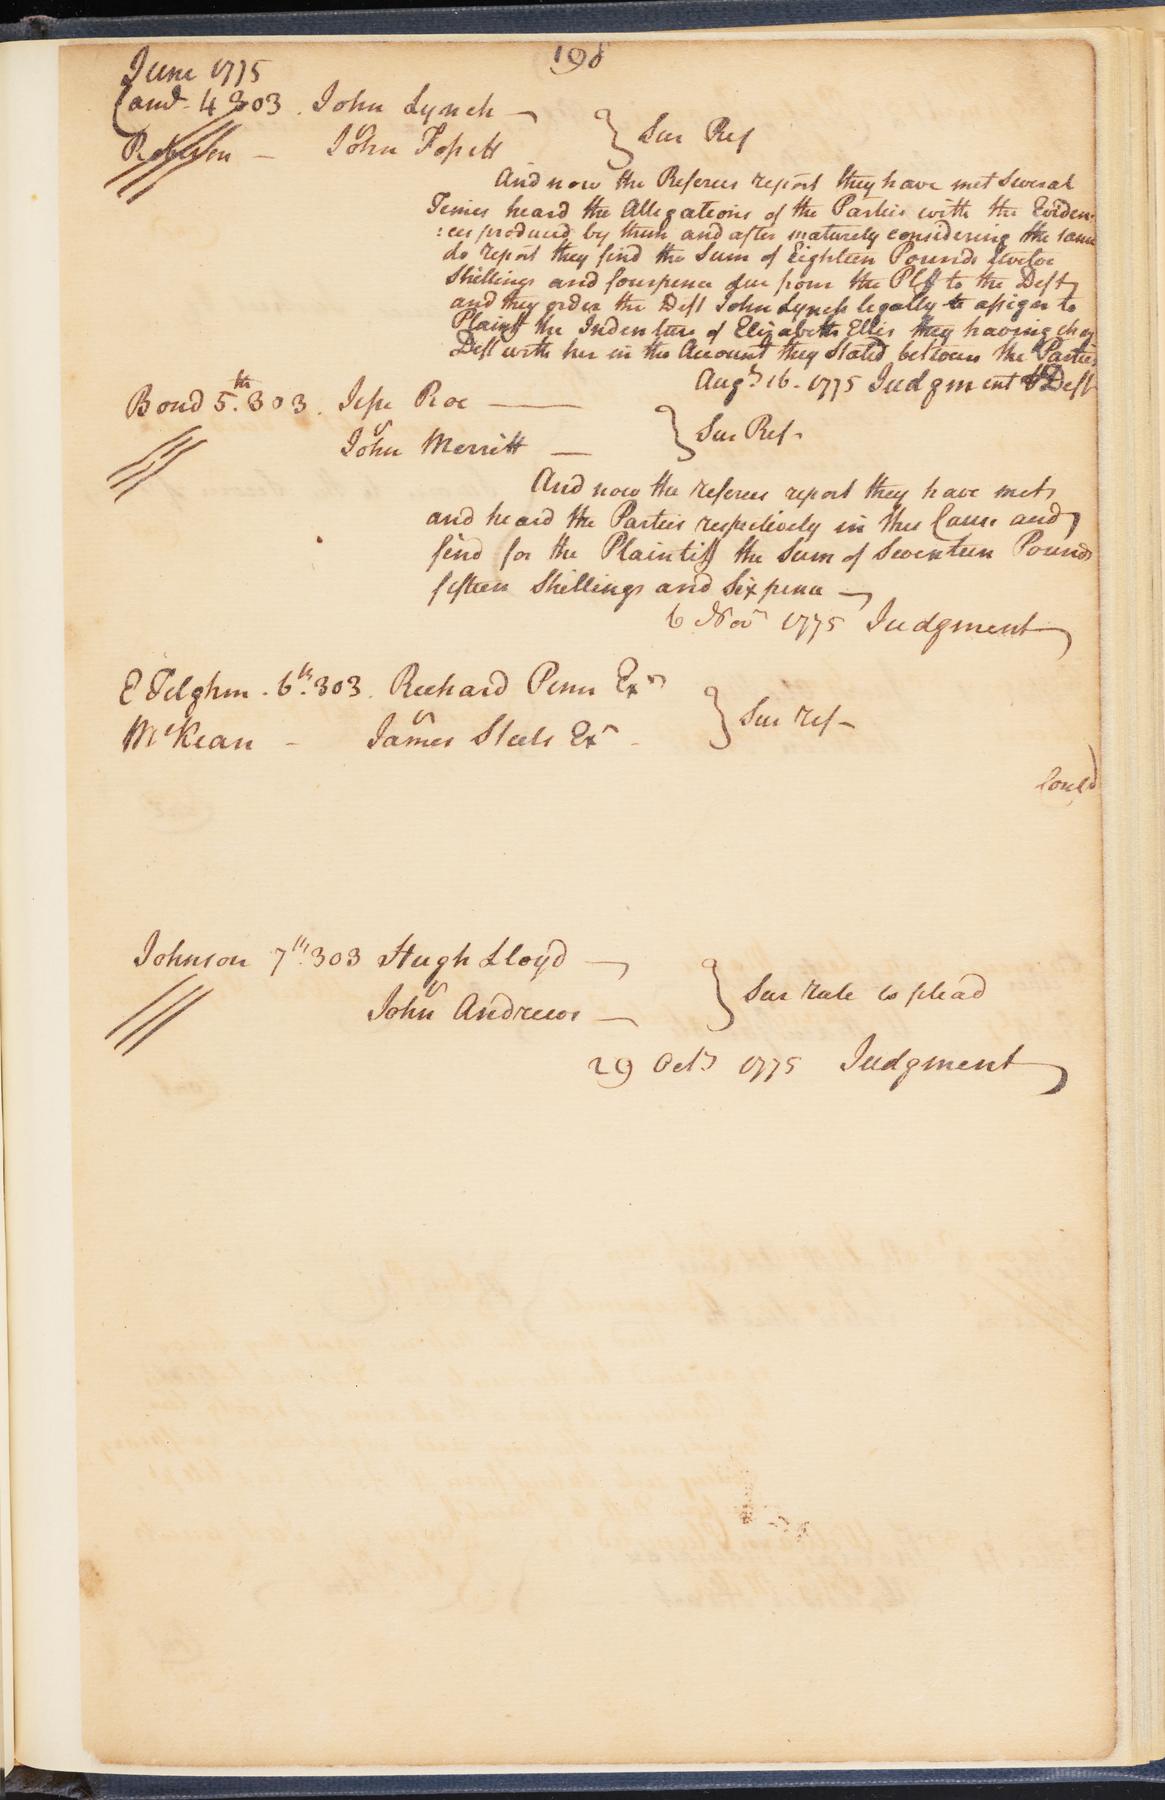 198
June 1775
Cand. 4 303. John Lynch
vs
Robeson — John Fopett
Sur Ref
And now the Referees report they have met Several
Times heard the Allegations of the Parties with the Eviden-
:ces produced by them and after maturely considering the same
do report they find the Sum of Eighteen Pounds twelve
Shillings and fourpence due from the Plff to the Deft
and they order the Deft John Lynch legally to assign to
Plaintff the Indenture of Elizabeth Ellis they having chag
Deft with her in the Account they Stated between the Parties
Augt 16 - 1775 Judgment Deft
Bond 5th. 303. Jesse Roe —
vs
John Merritt —
Sur Ref.
And now the referees report they have met
and heard the Parties respectively in this Cause and
find for the Plaintiff the Sum of Seventeen Pounds
fifteen Shillings and Sixpence
6 Novr 1775 Judgment
E Tilghm. 6th. 303. Richard Penn Exr
vs
McKean - James Steels Exr -
Sur ref -
Contd
Johnson 7th. 303 Hugh Lloyd —
vs
John Andrews —
Sur rule to plead
29 Octr 1775 Judgment